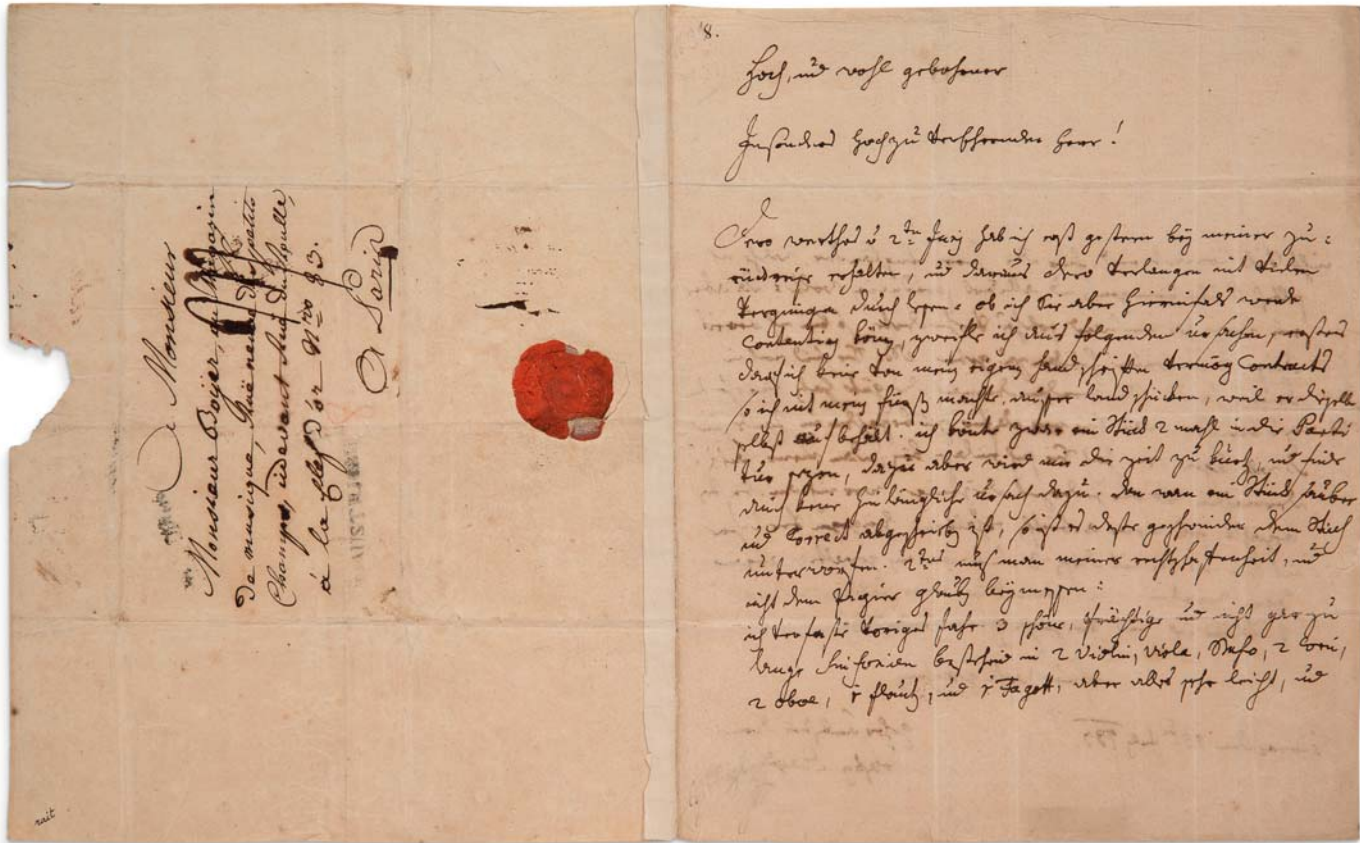 A Monsieur
Monsieur Boyer, au Magazin
de musique, Rüe neuve des petits
Champs, cidevant Rue du Roulle,
à la Clef d'or Nro 83.
à Paris
rait
8.
Hoch, und wohl gebohrner
Insonders Hochzu Verehrender Herr!
Dero werthes v 2ten Juny hab ich erst gestern bey meiner zu=
rückreise erhalten, und daraus dero Verlangen mit Vielen
Vergnügen durch lesen. ob ich Sie aber hierinfals werde
Contentiren könen, zweifle ich aus folgenden ursachen, erstens
darf ich keine von mein eigenen handschriften vermög Contracts
so ich mit mein Fürst machte, ausser land schicken, weil er dieselbe
selbst aufbehalt. ich könte zwar ein Stück 2 mahl in die Parti
tur sezen, dazu aber wird mir die zeit zu kurtz, und finde
auch keine hinlängliche ursach dazu. den wan ein Stück sauber
und Correct abgeschrieben ist, so ist es desto geschwinder dem Stich
unterworfen. 2tens mus man meiner rechtschaffenheit, und
nicht dem Papier glauben beymessen:
ich verfaste voriges Jahr 3 schöne, prächtige und nicht gar zu
lange Sinfonien bestehend in 2 Violin, Viola, Basso, 2 Corni,
2 oboe, 1 flaut, und 1 Fagott, aber alles sehr leicht, und